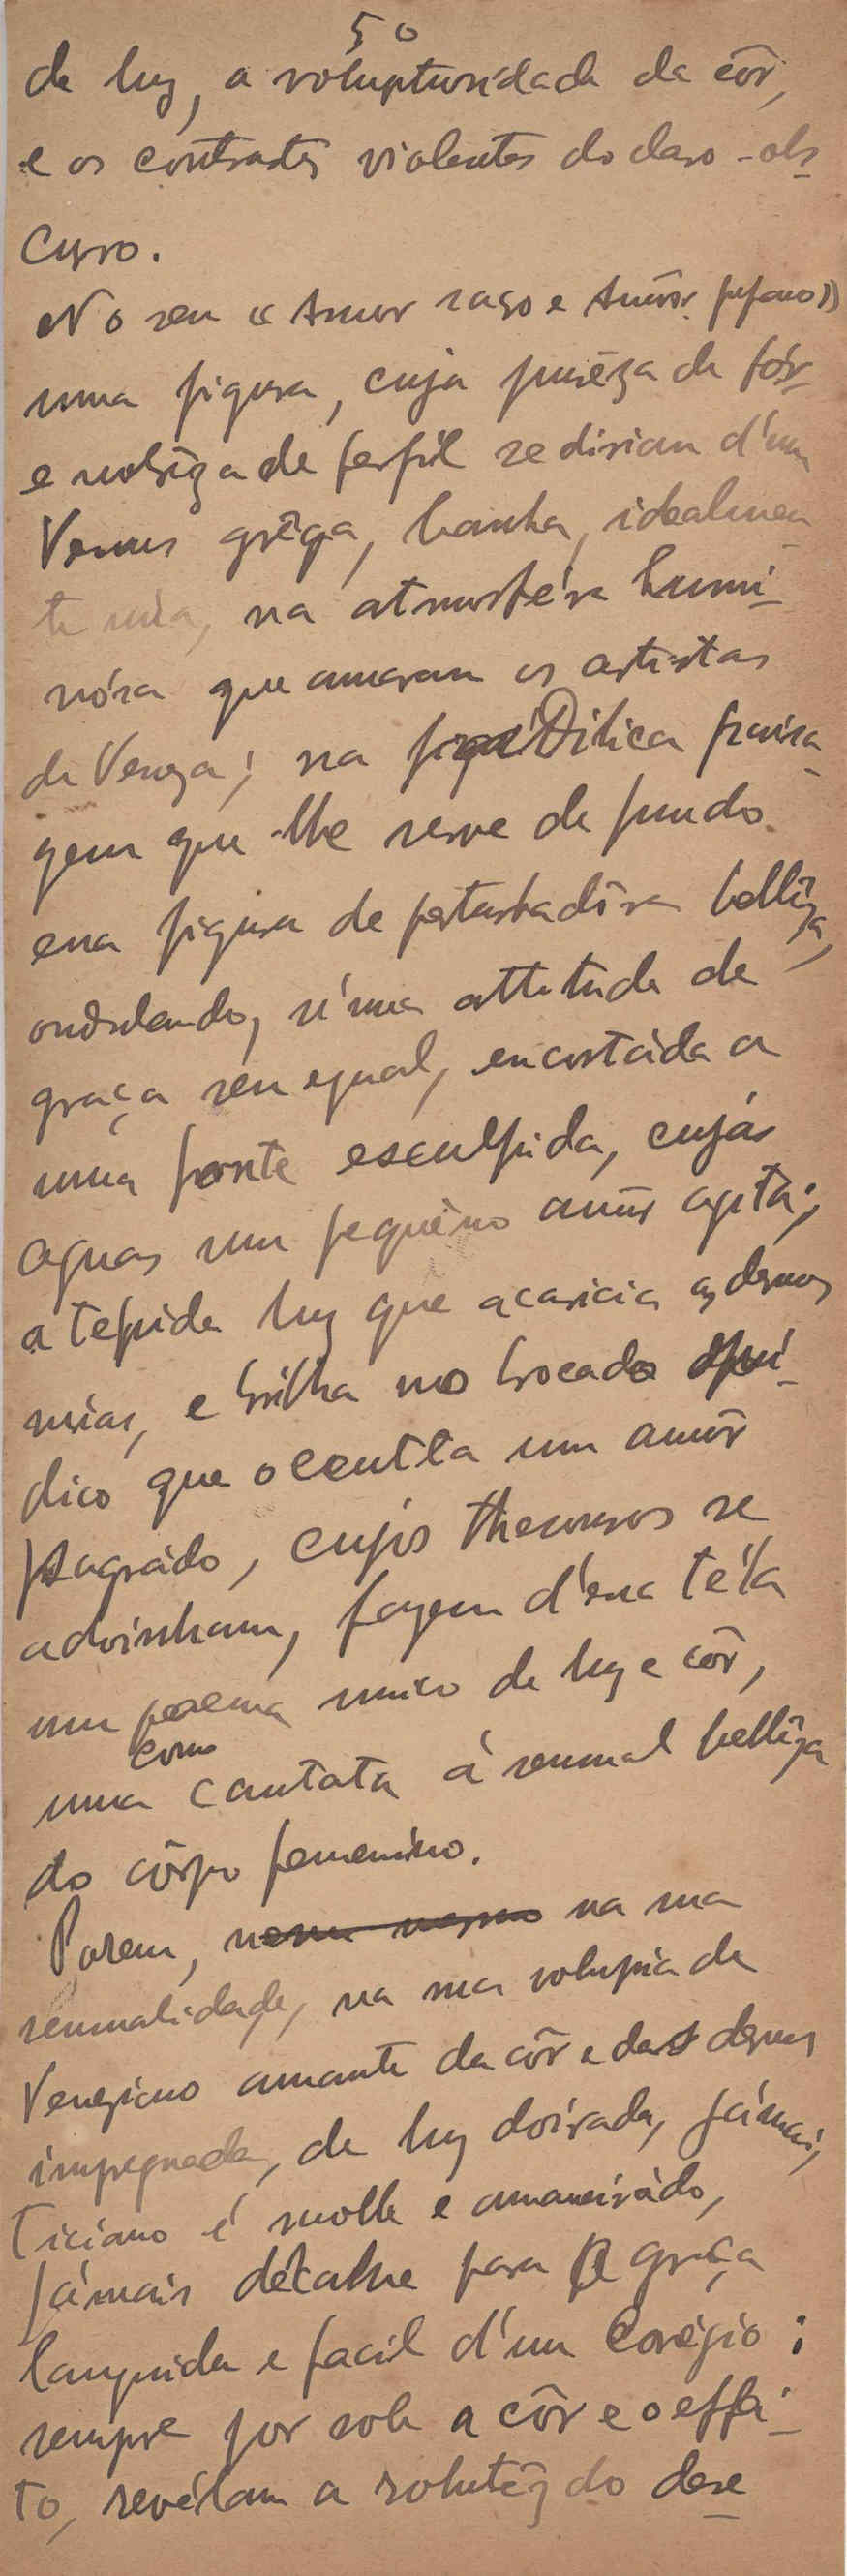 50
de luz, a voluptuosidade da côr,
e os contrastes violentos do claro-obs
curo.
No seu «Amor sacro e Amôr profano»
uma figura, cuja purêza de fór-
e nobrêza de perfil se diriam d'uma
Venus grêga, banha, idealmen
te núa, na atmosféra lumi-
nósa que amaram os artistas
de Veneza; na idilica paisa-
gem que lhe serve de fundo
essa figura de perturbadôra bellêza,
ondulando, n'uma attitude de
graça sem egual, encostáda a
uma fonte esculpida, cujás
aguas um pequêno amôr agita;
a tepida luz que acaricia as carnes
núas, e brilha no brocado
dico que occulta um amôr
sagrádo, cujos thesouros se
advinham, fazem d'essa téla
um poema unico de luz e côr,
como
uma cantata á sensual bellêza
do côrpo femenino.
Porem, nem mesmo na sua
sensualidade, na sua volupia de
Veneziano amante da côr e das carnes
impregnadas de luz doirada, jámais,
Ticiano é molle e amaneirádo,
jámais decahe para a graça
languida e facil d'um Corégio;
sempre por sob a côr e o effei-
to, revélam a solidez do dese